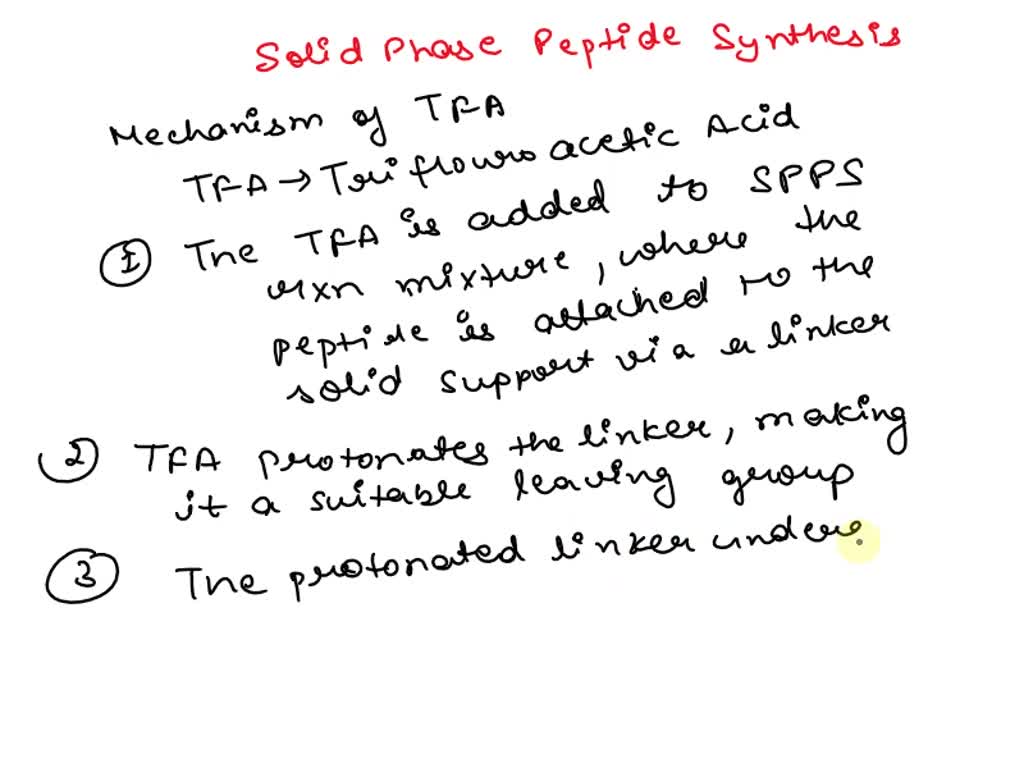 Solid Phase Peptide Synthesis
Mechanism of TFA
TFA → Triflouro acetic Acid
① The TFA is added to SPPS
rxn mixture, where the
peptide is attached to the
solid support via a linker
② TFA protonates the linker, making
it a suitable leaving group
③ The protonated linker undere